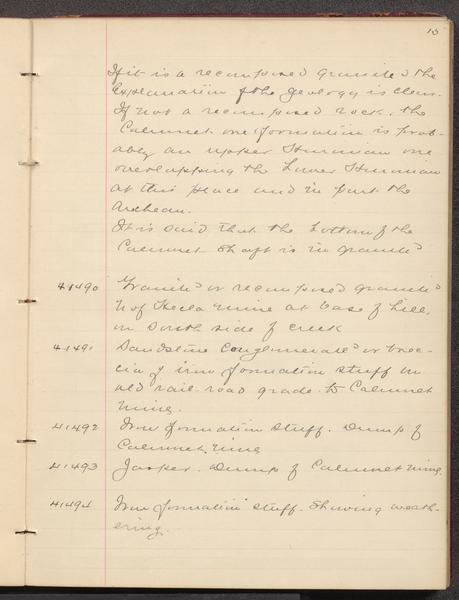 15
If it is a recomposed granite the
Explanation of the geology is clear.
If not a recomposed rock, the
Calumet ore formation is prob-
ably an upper Huronian one
overlapping the Lower Huronian
at this place and in part the
Archean.
It is said that the bottom of the
Calumet Shaft is in granite
41490 Granite or recomposed granite
N of Hecla mine at base of hill,
on South side of creek
41491 Sandstone Conglomerate or brec-
cia of iron formation stuff on
old rail-road grade to Calumet
mine.
41492 Iron formation stuff. Dump of
Calumet mine
41493 Jasper. Dump of Calumet mine.
41494 Iron formation stuff. Showing weath-
ering.